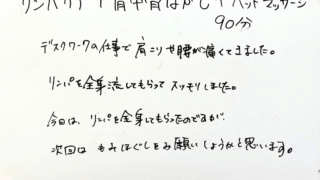 リンパケア+肩甲骨はがし+ヘッドマッサージ
90分
デスクワークの仕事で肩こりや腰が痛くてきました。
リンパを全身流してもらってスッキリしました。
今日は、リンパを全身してもらったのですが、
次回はもみほぐしをお願いしようかと思います。